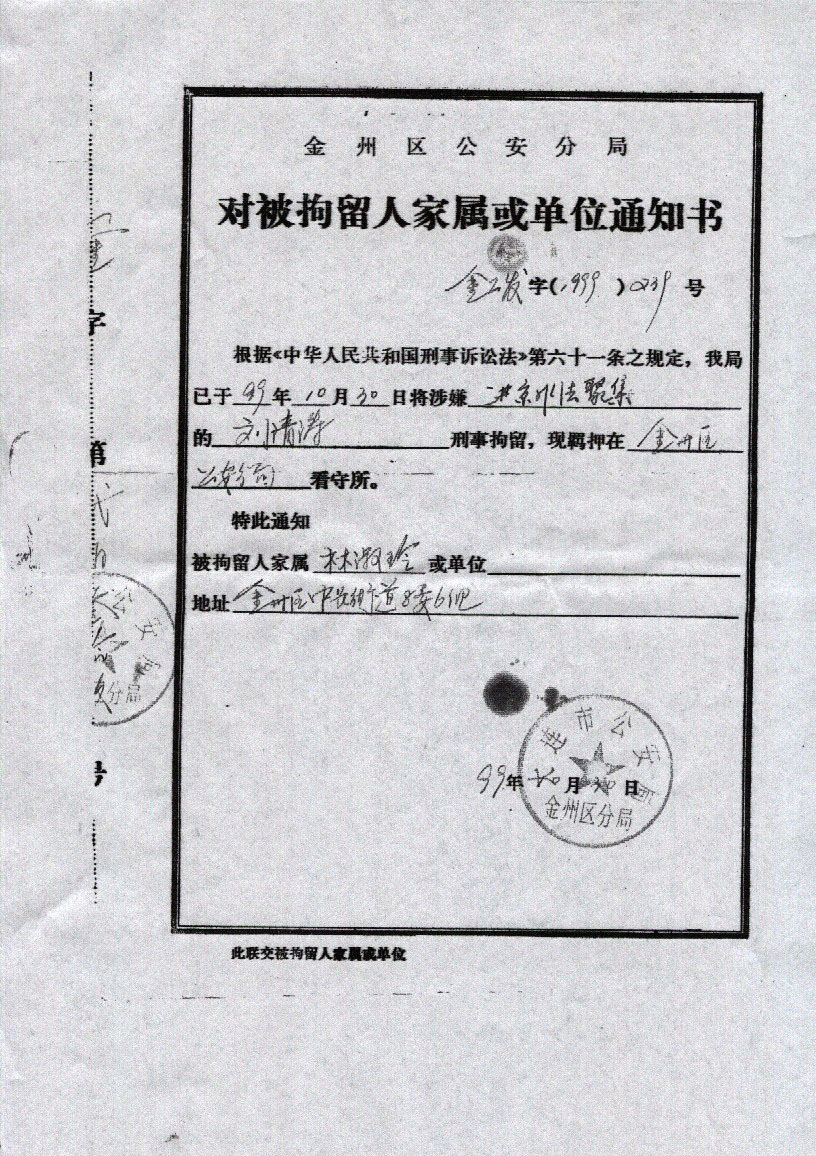 金州区公安分局
对被拘留人家属或单位通知书
字(1999)0239号
根据《中华人民共和国刑事诉讼法》第六十一条之规定，我局
已于99年10月30日将涉嫌进京非法聚集
的刘 刑事拘留，现羁押在金州区
公安分局看守所。
特此通知
被拘留人家属林淑玲或单位
地址金州区中长街道8委6组
99年 月 日
大连市公安局
金州区分局
此联交被拘留人家属或单位
字
第
号
公安局
分局